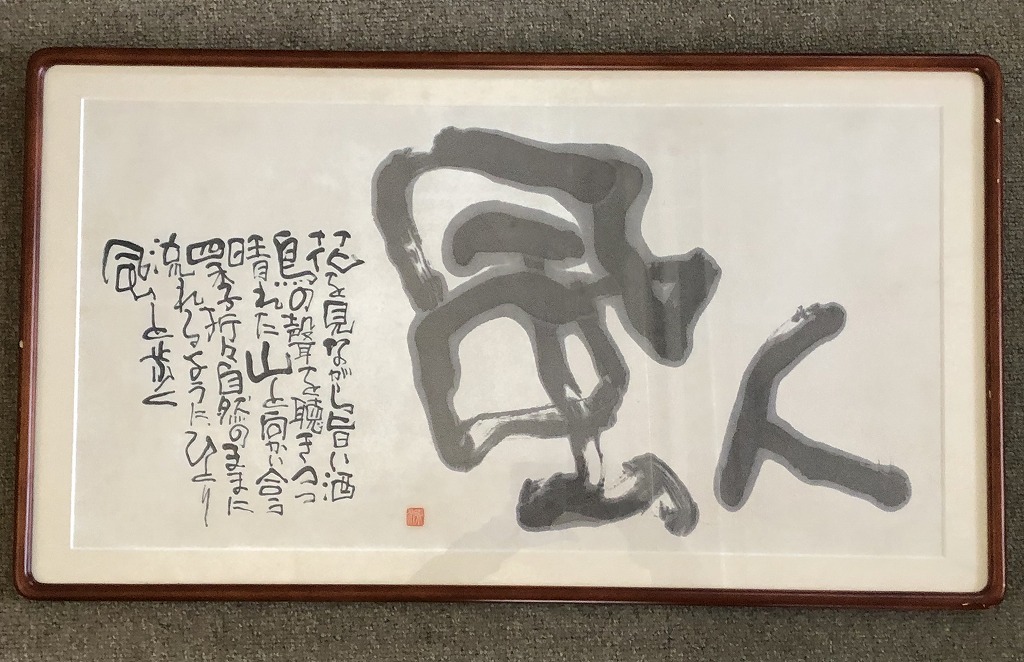 人
風
花を見ながら旨い酒
鳥の聲を聴きつつ
晴れた山と向かい合う
四季折々自然のままに
流れるようにひとり
と歩く